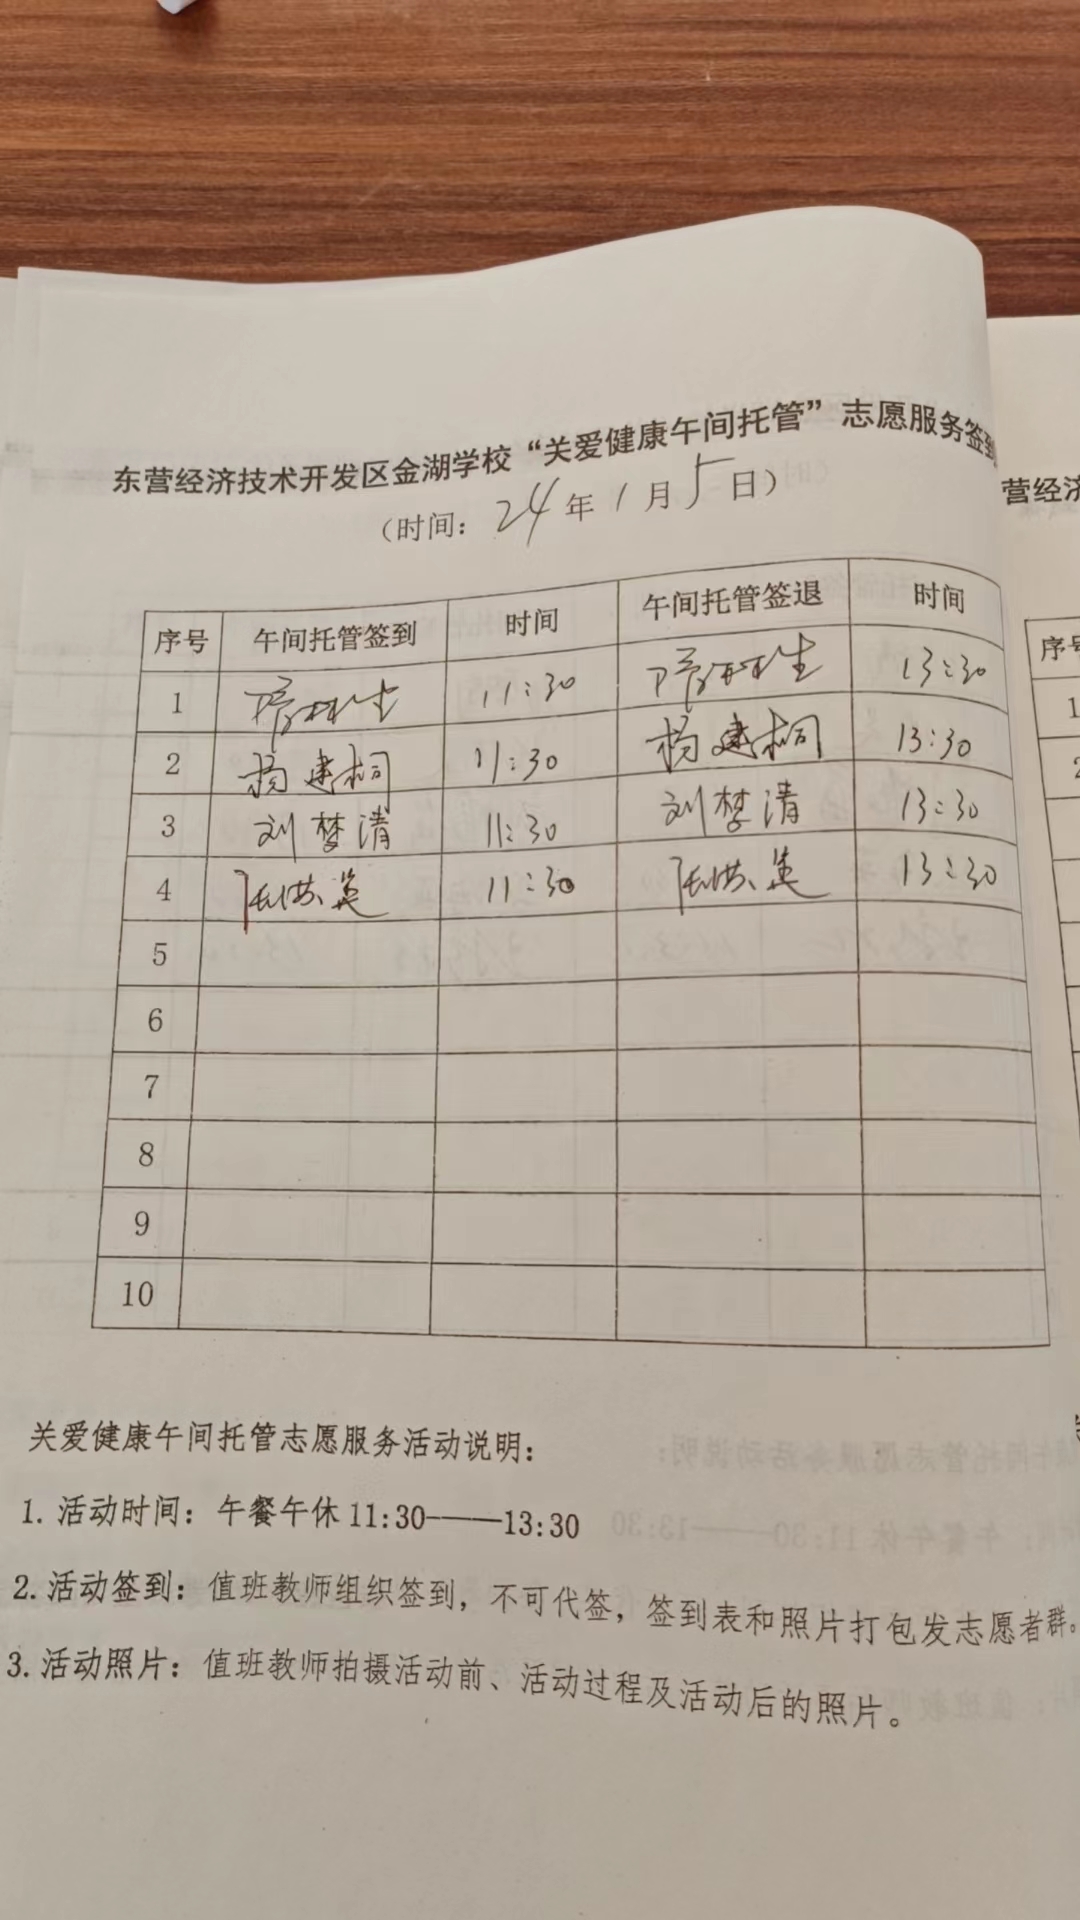 东营经济技术开发区金湖学校“关爱健康午间托管”志愿服务签到
（时间：24年1月5日）
序号 午间托管签到 时间 午间托管签退 时间
1 11:30 13:30
2 杨建桐 11:30 杨建桐 13:30
3 刘梦清 11:30 刘梦清 13:30
4 11:30 13:30
5
6
7
8
9
10
关爱健康午间托管志愿服务活动说明：
1. 活动时间：午餐午休11:30——13:30
2. 活动签到：值班教师组织签到，不可代签，签到表和照片打包发志愿者群。
3. 活动照片：值班教师拍摄活动前、活动过程及活动后的照片。
营经济
序号
1
2